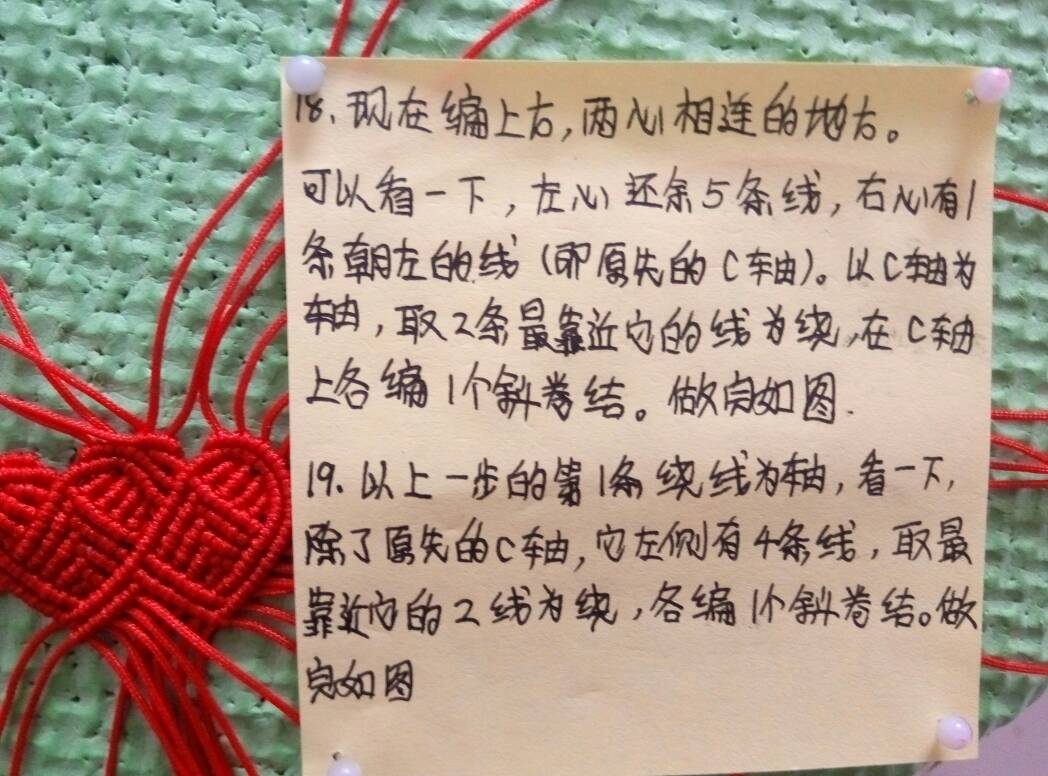 18.现在编上方,两心相连的地方。
可以看一下,左心还余5条线,右心有1
条朝左的线(即原先的C轴)。以C轴为
轴,取2条最靠近它的线为绕,在C轴
上各编1个斜卷结。做完如图.
19.以上一步的第1条绕线为轴,看一下,
除了原先的C轴,它左侧有4条线,取最
靠近它的2线为绕,各编1个斜卷结。做
完如图